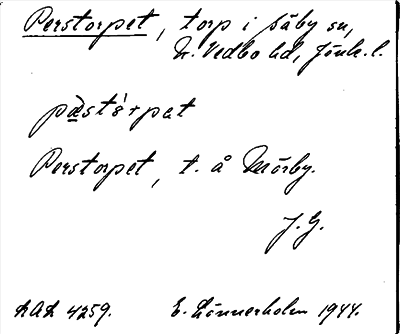 Perstorpet, torp i Säby sn,
N. Vedbo hd, Jönk. l.
pæ̀stórpat
Perstorpet, t. å Mörby.
J. G.
LAL 4259. E. Lönnerholm 1944.